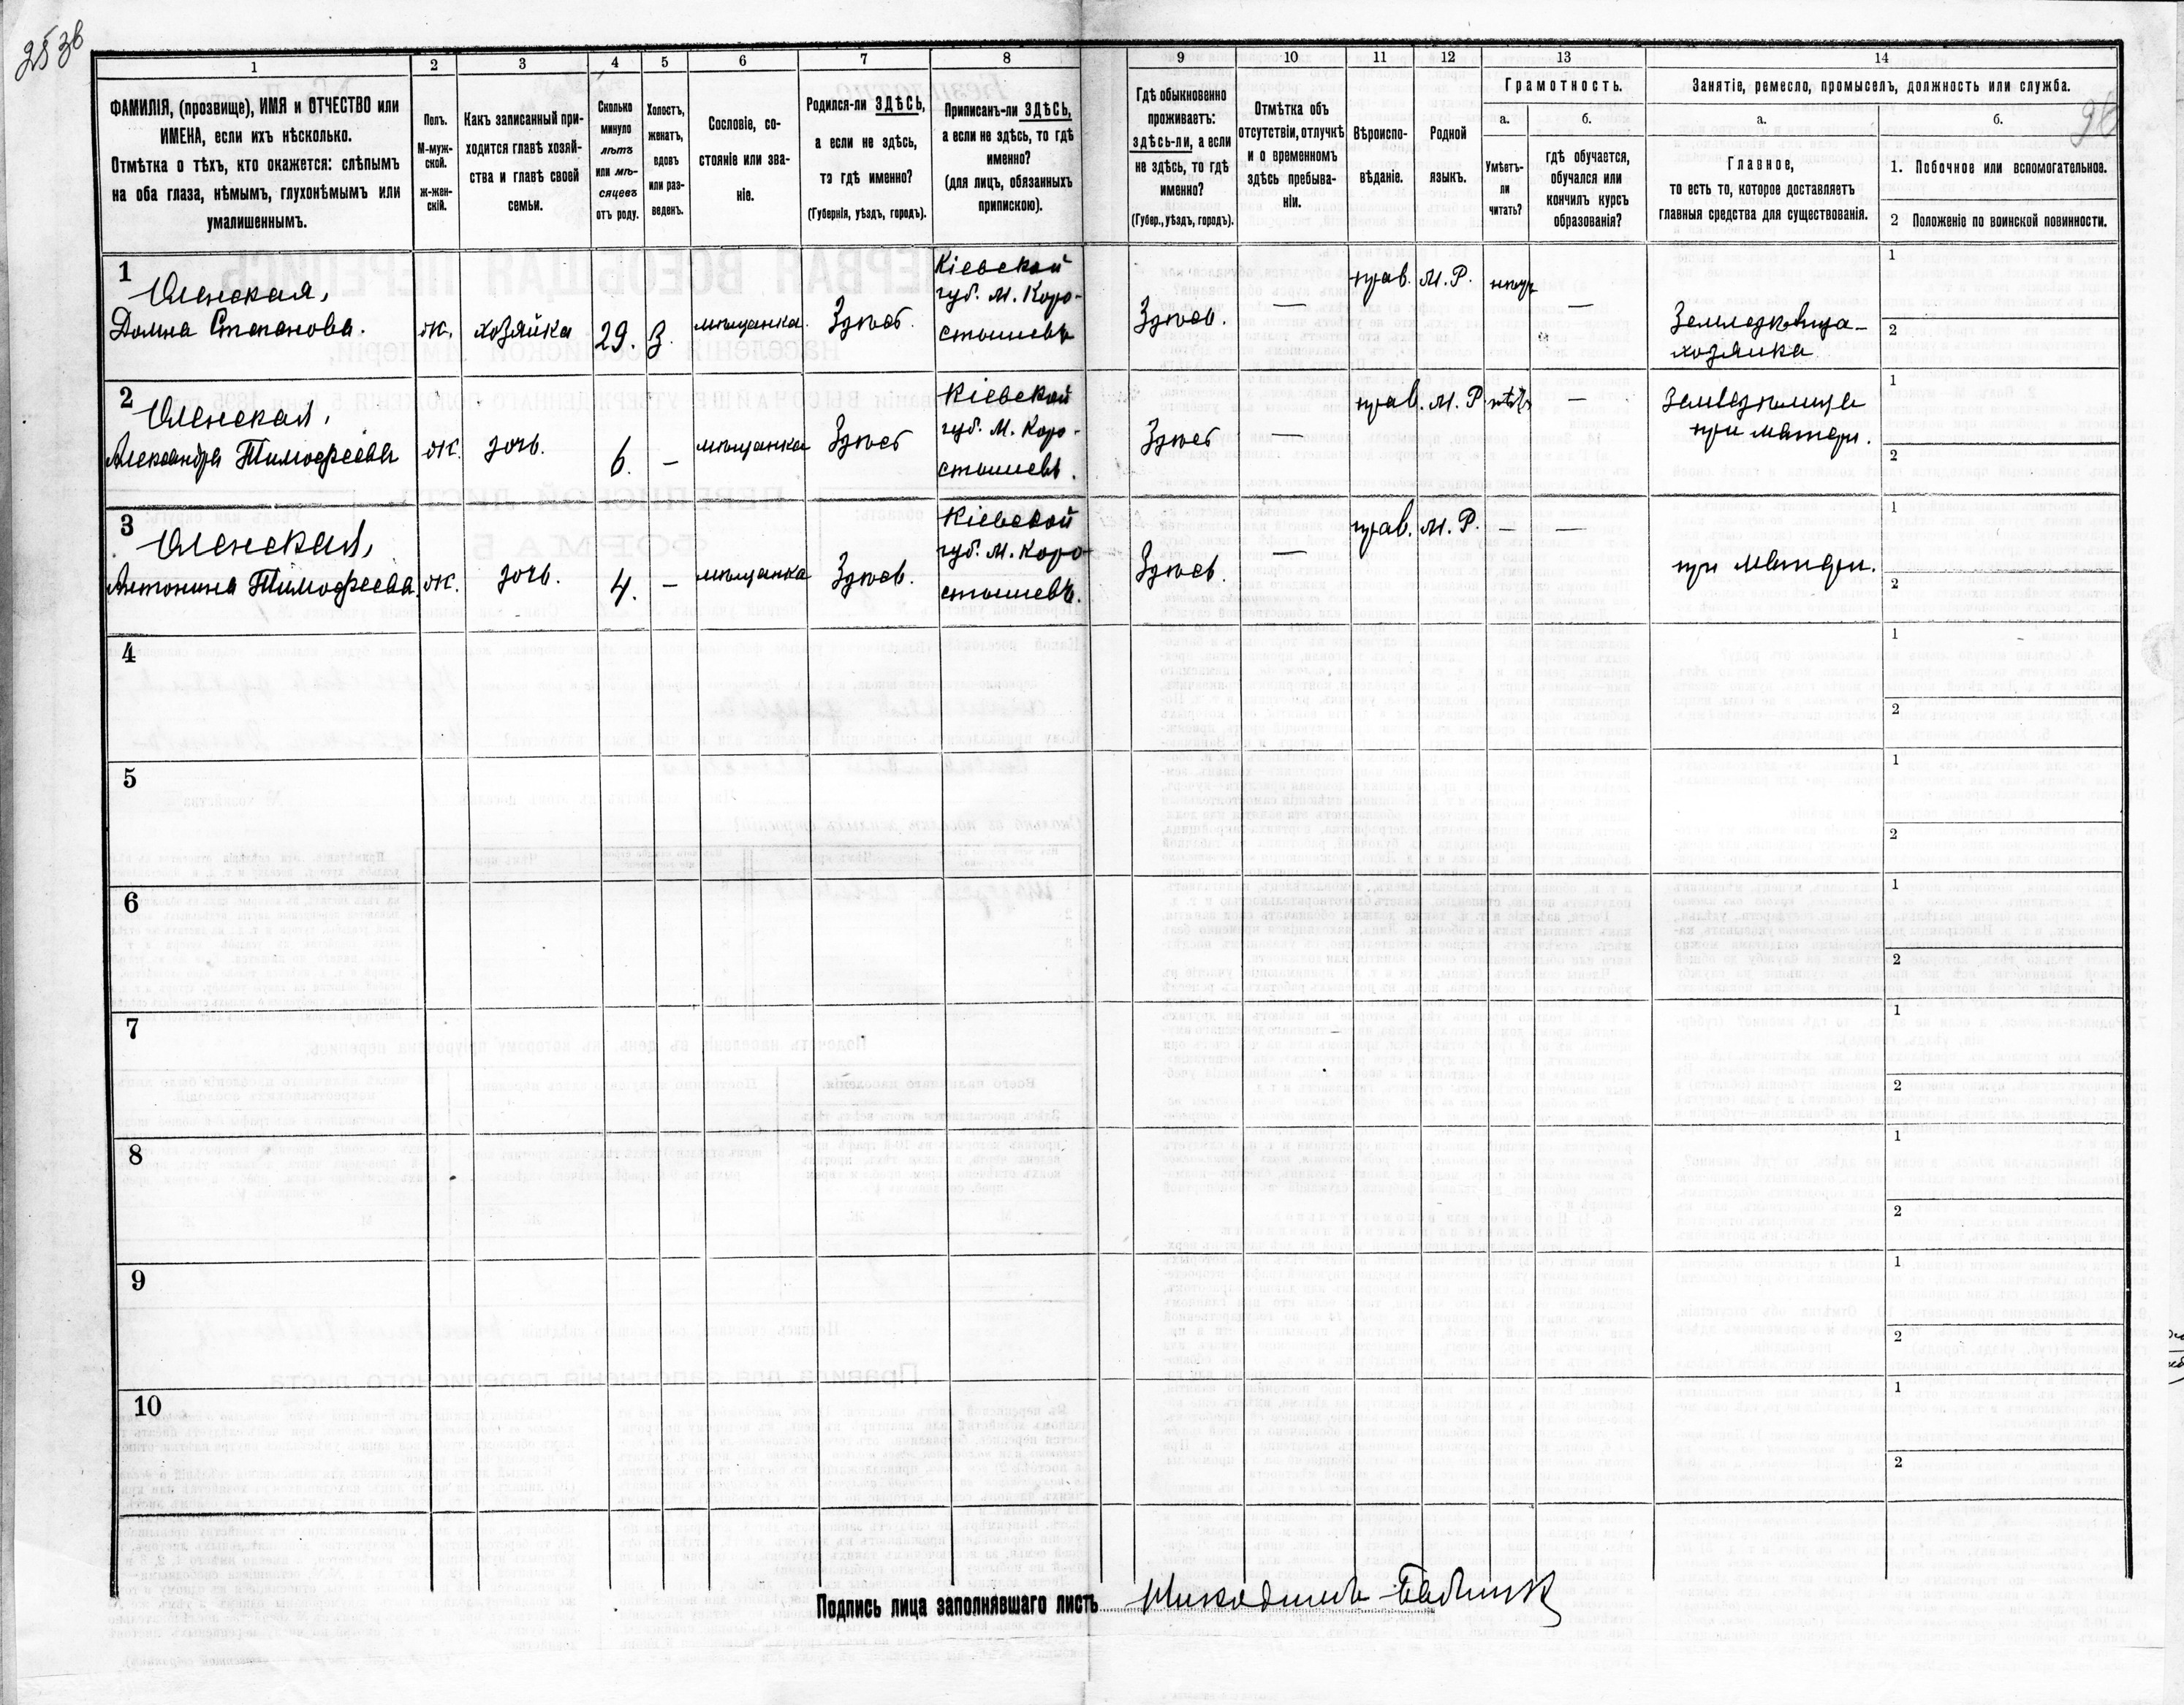 253б
96
1
2
3
4
5
6
7
8
9
10
11
12
13
14
ФАМИЛІЯ, (прозвище), ИМЯ и ОТЧЕСТВО или
ИМЕНА, если ихъ нѣсколько.
Отмѣтка о тѣхъ, кто окажется: слѣпымъ
на оба глаза, нѣмымъ, глухонѣмымъ или
умалишеннымъ.
Полъ.
М-муж-
ской.
ж-жен-
скій.
Какъ записанный при-
ходится главѣ хозяй-
ства и главѣ своей
семьи.
Сколько
минуло
лѣтъ
или мѣ-
сяцевъ
отъ роду.
Холостъ,
женатъ,
вдовъ
или раз-
веденъ.
Сословіе, со-
стояніе или зва-
ніе.
Родился-ли ЗДѢСЬ,
а если не здѣсь,
то гдѣ именно?
(Губернія, уѣздъ, городъ).
Приписанъ-ли ЗДѢСЬ,
а если не здѣсь, то гдѣ
именно?
(для лицъ, обязанныхъ
припискою).
Гдѣ обыкновенно
проживаетъ:
здѣсь-ли, а если
не здѣсь, то гдѣ
именно?
(Губер., уѣздъ, городъ).
Отмѣтка объ
отсутствіи, отлучкѣ
и о временномъ
здѣсь пребыва-
ніи.
Вѣроиспо-
вѣданіе.
Родной
языкъ.
Грамотность.
а.
Умѣетъ-
ли
читать?
б.
гдѣ обучается,
обучался или
кончилъ курсъ
образованія?
Занятіе, ремесло, промыселъ, должность или служба.
а.
Главное,
то есть то, которое доставляетъ
главныя средства для существованія.
б.
1. Побочное или вспомогательное.
2 Положеніе по воинской повинности.
1
Оленская,
Домна Степанова.
ж.
хозяйка
29.
З.
мѣщанка
Здѣсь.
Кіевской
губ. М. Коро-
стышевъ
Здѣсь.
—
прав.
М. Р.
—
Земледѣлица-
хозяйка
1
2
2
Оленская,
Александра Тимофеева
ж.
дочь.
6.
—
мѣщанка
Здѣсь
Кіевской
губ. М. Коро-
стышевъ.
Здѣсь
—
прав.
М. Р.
нѣтъ
—
Земледѣлица
при матери.
1
2
3
Оленская,
Антонина Тимофеева.
ж.
дочь.
4.
—
мѣщанка
Здѣсь.
Кіевской
губ. М. Коро-
стышевъ.
Здѣсь.
—
прав.
М. Р.
—
—
при матери.
1
2
4
1
2
5
1
2
6
1
2
7
1
2
8
1
2
9
1
2
10
1
2
Подпись лица заполнявшаго листъ